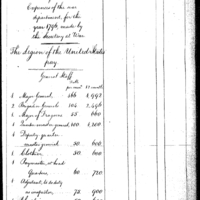 Expences of the war
department, for the
year 1794, made by
the Secretary at War
The Legion of the United States
pay.
General Staff
1 Major General 166 1,992
2 Brigadier Generals 104 2,496
1 Major of Dragoons 55 660
1 Quarter master general 100 1,200
1 Deputy quarter
master general 50 600
1 50 600
1 Paymaster, at head
Quarters 60 720
1 Adjutant, to do duty
as inspector 75 900